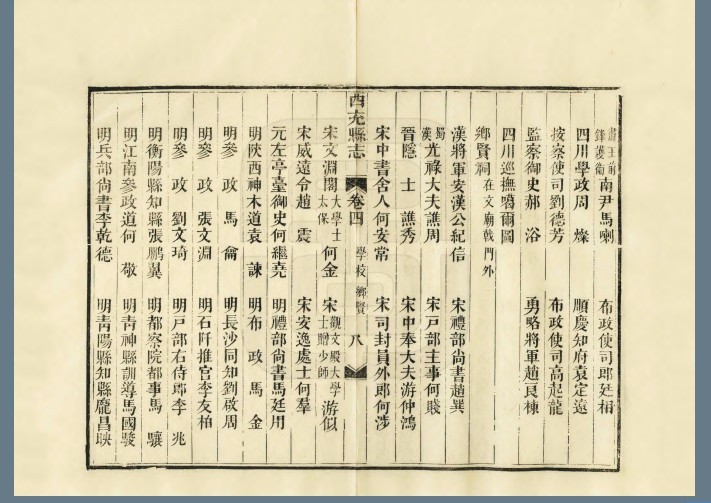 鋒護衛南尹馬喇　布政使司郎廷相
四川學政周燦　順慶知府袁定遠
按察使司劉德芳　布政使司高起龍
監察御史郝浴　勇略將軍趙良棟
四川巡撫噶爾圖
鄉賢祠在文廟戟門外
漢將軍安漢公紀信　宋禮部尙書趙巽
蜀漢光祿大夫譙周　宋戸部主事何賤
晉隱士譙秀　宋中奉大夫游仲鴻
宋中書舍人何安常　宋司封員外郎何涉
西充縣志　卷四　學校　鄉賢　八
宋文淵閣大學士太保何金　宋觀文殿大學士贈少師游似
宋威遠令趙震　宋安逸處士何羣
元左亭臺御史何繼堯　明禮部尙書馬廷用
明陝西神木道袁諫　明布政馬金
明參政馬龠　明長沙同知劉啟周
明參政張文淵　明石阡推官李友柏
明參政劉文琦　明戸部右侍郎李兆
明衡陽縣知縣張鵬翼　明都察院都事馬驤
明江南參政道何敬　明青神縣訓導馬國駿
明兵部尙書李乾德　明青陽縣知縣龐昌映